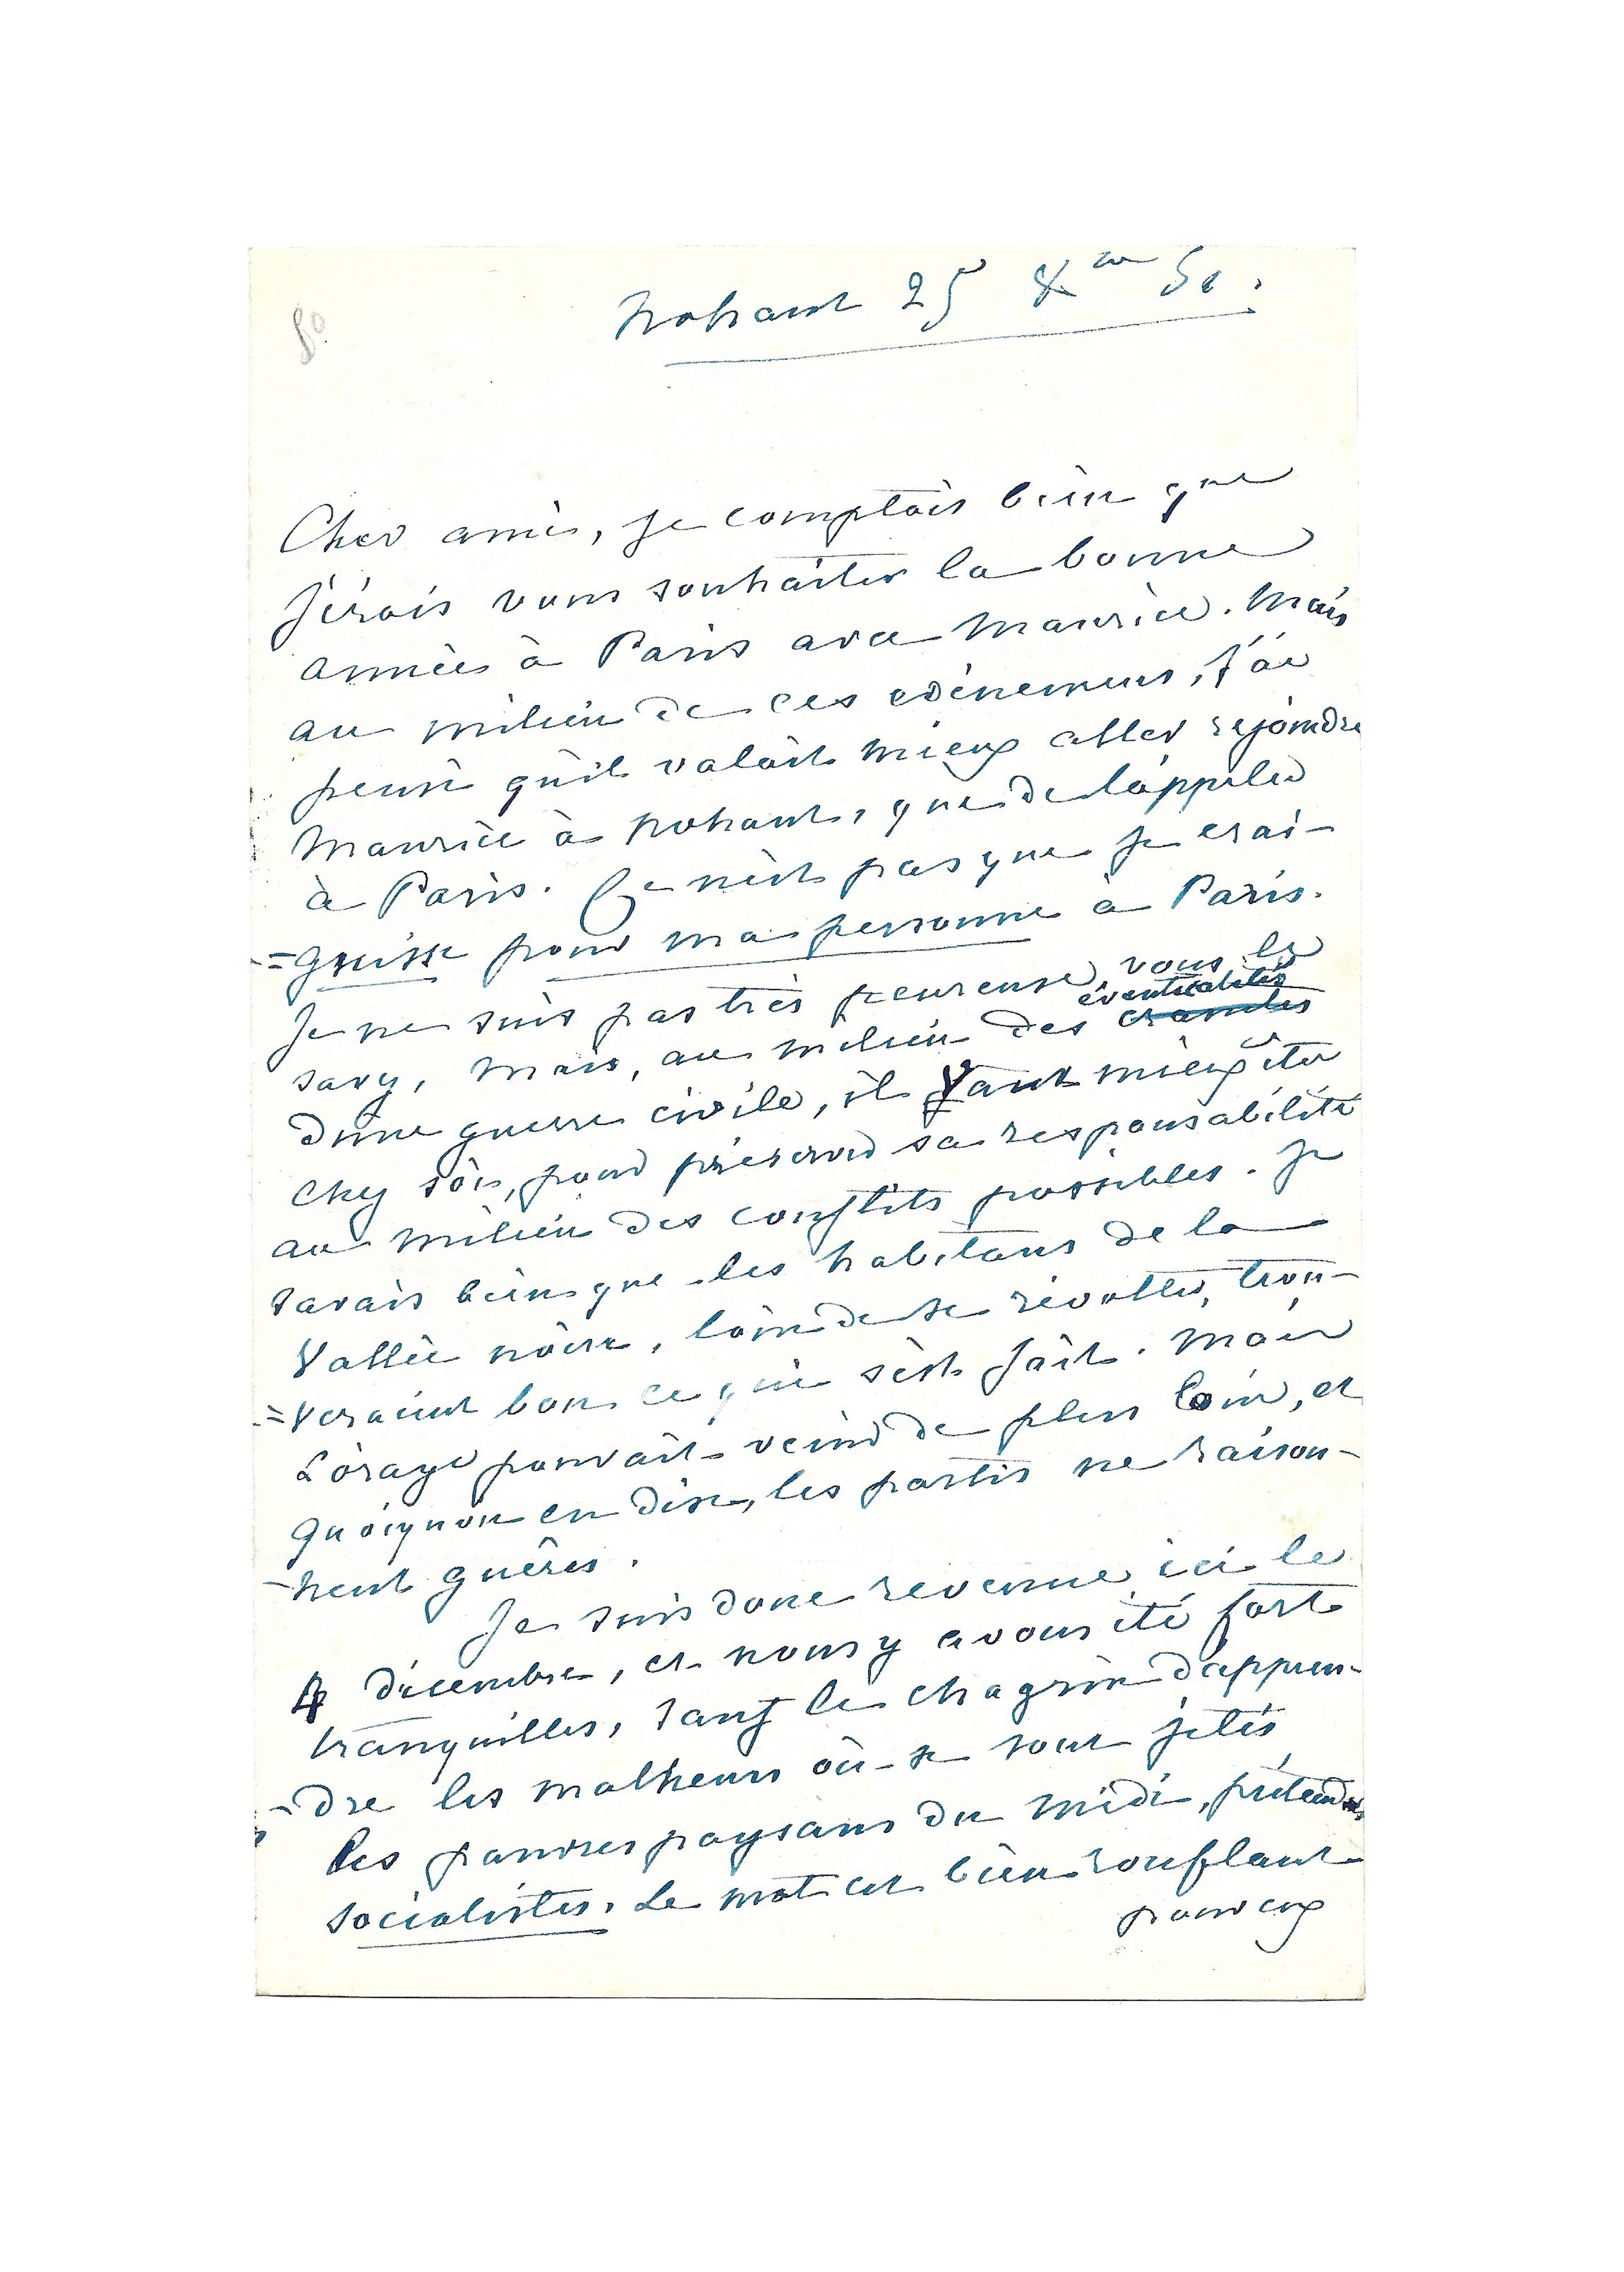 8°
Nohant 25 Xbre 51.
Cher ami, je comptais bien que
j'irais vous souhaiter la bonne
année à Paris avec Maurice. Mais
au milieu de ces evènemens, j'ai
pensé qu'il valait mieux aller rejoindre
Maurice à Nohant, que de l'appeler
à Paris. Ce n'est pas que je crai-
=gnisse pour ma personne à Paris.
Je ne suis pas très peureuse, vous le
éventualités
savez, mais, au milieu des
d'une guerre civile, il vaut mieux être
chez soi, pour préserver sa responsabilité
au milieu des conflits possibles. Je
savais bien que les habitans de la
Vallée noire, loin de se révolter, trou-
=veraient bon ce qui s'est fait. Mais
l'orage pouvait venir de plus loin, et
quoiqu'on en dise, les partis ne raison-
-nent guères.
Je suis donc revenue ici le
4 décembre, et nous y avons été fort
tranquilles, sauf le chagrin d'appren-
-dre les malheurs où se sont jetés
les pauvres paysans du midi, prétendus
socialistes. Le mot est bien ronflant
pour eux